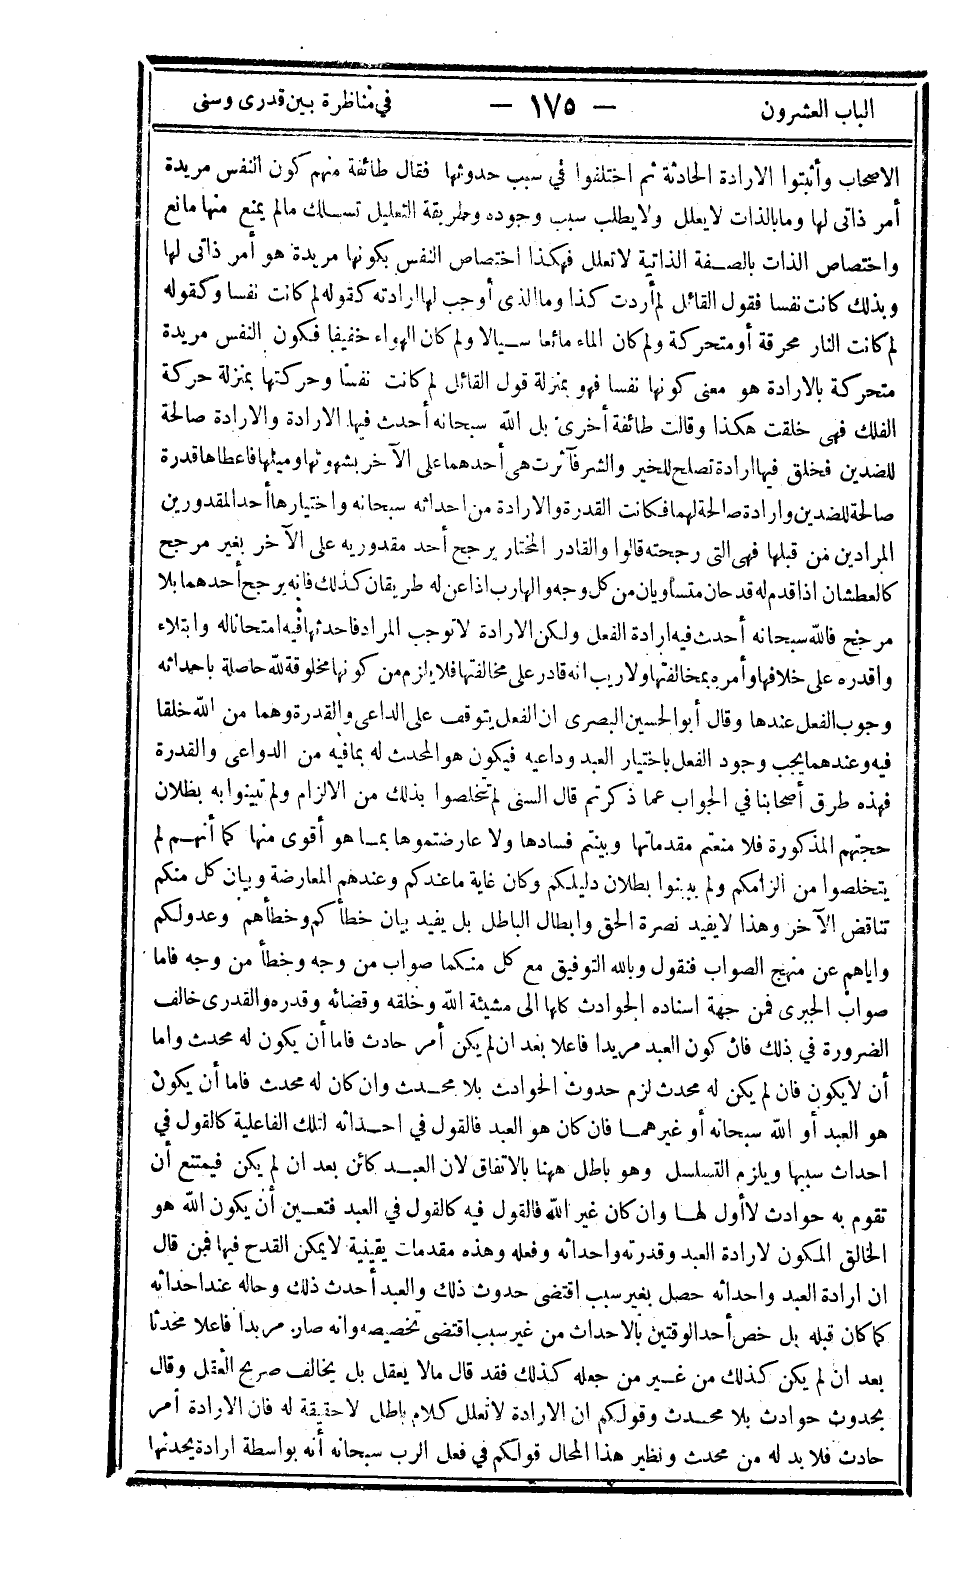 الباب العشرون — ١٧٥ — في مناظرة بين قدرى وسنى
الاصحاب وأثبتوا الارادة الحادثة ثم اختلفوا في سبب حدوثها فقال طائفة منهم كون النفس مريدة
أمر ذاتى لها وما بالذات لا يعلل ولا يطلب سبب وجوده وطريقة التعليل تسلك مالم يمنع منها مانع
واختصاص الذات بالصفة الذاتية لا تعلل فهكذا اختصاص النفس بكونها مريدة هو أمر ذاتى لها
وبذلك كانت نفسا فقول القائل لم أردت كذا وما الذى أوجب لها ارادته كقوله لم كانت نفسا وكقوله
لم كانت النار محرقة أو متحركة ولم كان الماء مائعا سيالا ولم كان الهواء خفيفا فكون النفس مريدة
متحركة بالارادة هو معنى كونها نفسا فهو بمنزلة قول القائل لم كانت نفسا وحركتها بمنزلة حركة
الفلك فهى خلقت هكذا وقالت طائفة أخرى بل الله سبحانه أحدث فيها الارادة والارادة صالحة
للضدين فخلق فيها ارادة تصلح للخير والشر فآثرت هى أحدهما على الآخر بشهوتها وميلها فاعطاها قدرة
صالحة للضدين وارادة صالحة لهما فكانت القدرة والارادة من احداثه سبحانه واختيارها أحد المقدورين
المرادين من قبلها فهى التى رجحته قالوا والقادر المختار يرجح أحد مقدوريه على الآخر بغير مرجح
كالعطشان اذا قدم له قدحان متساويان من كل وجه والهارب اذا عن له طريقان كذلك فانه يرجح أحدهما بلا
مرجح فالله سبحانه أحدث فيه ارادة الفعل ولكن الارادة لا توجب المراد فاحدثها فيه امتحانا له وابتلاء
وأقدره على خلافها وأمره بمخالفتها ولا ريب انه قادر على مخالفتها فلا يلزم من كونها مخلوقة لله حاصلة باحداثه
وجوب الفعل عندها وقال أبو الحسين البصرى ان الفعل يتوقف على الداعى والقدرة وهما من الله خلقا
فيه وعندهما يجب وجود الفعل باختيار العبد وداعيه فيكون هو المحدث له بما فيه من الدواعى والقدرة
فهذه طرق أصحابنا في الجواب عما ذكرتم قال السنى لم تتخلصوا بذلك من الالزام ولم تبينوا به بطلان
حجتهم المذكورة فلا منعتم مقدماتها وبينتم فسادها ولا عارضتموها بما هو أقوى منها كما أنهم لم
يتخلصوا من الزامكم ولم يبينوا بطلان دليلكم وكان غاية ما عندكم وعندهم المعارضة وبيان كل منكم
تناقض الآخر وهذا لا يفيد نصرة الحق وابطال الباطل بل يفيد بيان خطأكم وخطأهم وعدولكم
واياهم عن منهج الصواب فنقول وبالله التوفيق مع كل منكما صواب من وجه وخطأ من وجه فاما
صواب الجبرى فمن جهة اسناده الحوادث كلها الى مشيئة الله وخلقه وقضائه وقدره والقدرى خالف
الضرورة في ذلك فان كون العبد مريدا فاعلا بعد ان لم يكن أمر حادث فاما أن يكون له محدث واما
أن لا يكون فان لم يكن له محدث لزم حدوث الحوادث بلا محدث وان كان له محدث فاما أن يكون
هو العبد أو الله سبحانه أو غيرهما فان كان هو العبد فالقول في احداثه لتلك الفاعلية كالقول في
احداث سببها ويلزم التسلسل وهو باطل ههنا بالاتفاق لان العبد كائن بعد ان لم يكن فيمتنع أن
تقوم به حوادث لا أول لها وان كان غير الله فالقول فيه كالقول في العبد فتعين أن يكون الله هو
الخالق المكون لارادة العبد وقدرته واحداثه وفعله وهذه مقدمات يقينية لا يمكن القدح فيها فمن قال
ان ارادة العبد واحداثه حصل بغير سبب اقتضى حدوث ذلك والعبد أحدث ذلك وحاله عند احداثه
كما كان قبله بل خص أحد الوقتين بالاحداث من غير سبب اقتضى تخصيصه وانه صار مريدا فاعلا محدثا
بعد ان لم يكن كذلك من غير من جعله كذلك فقد قال مالا يعقل بل يخالف صريح العقل وقال
بحدوث حوادث بلا محدث وقولكم ان الارادة لا تعلل كلام باطل لا حقيقة له فان الارادة أمر
حادث فلا بد له من محدث ونظير هذا المحال قولكم في فعل الرب سبحانه أنه بواسطة ارادة يحدثها